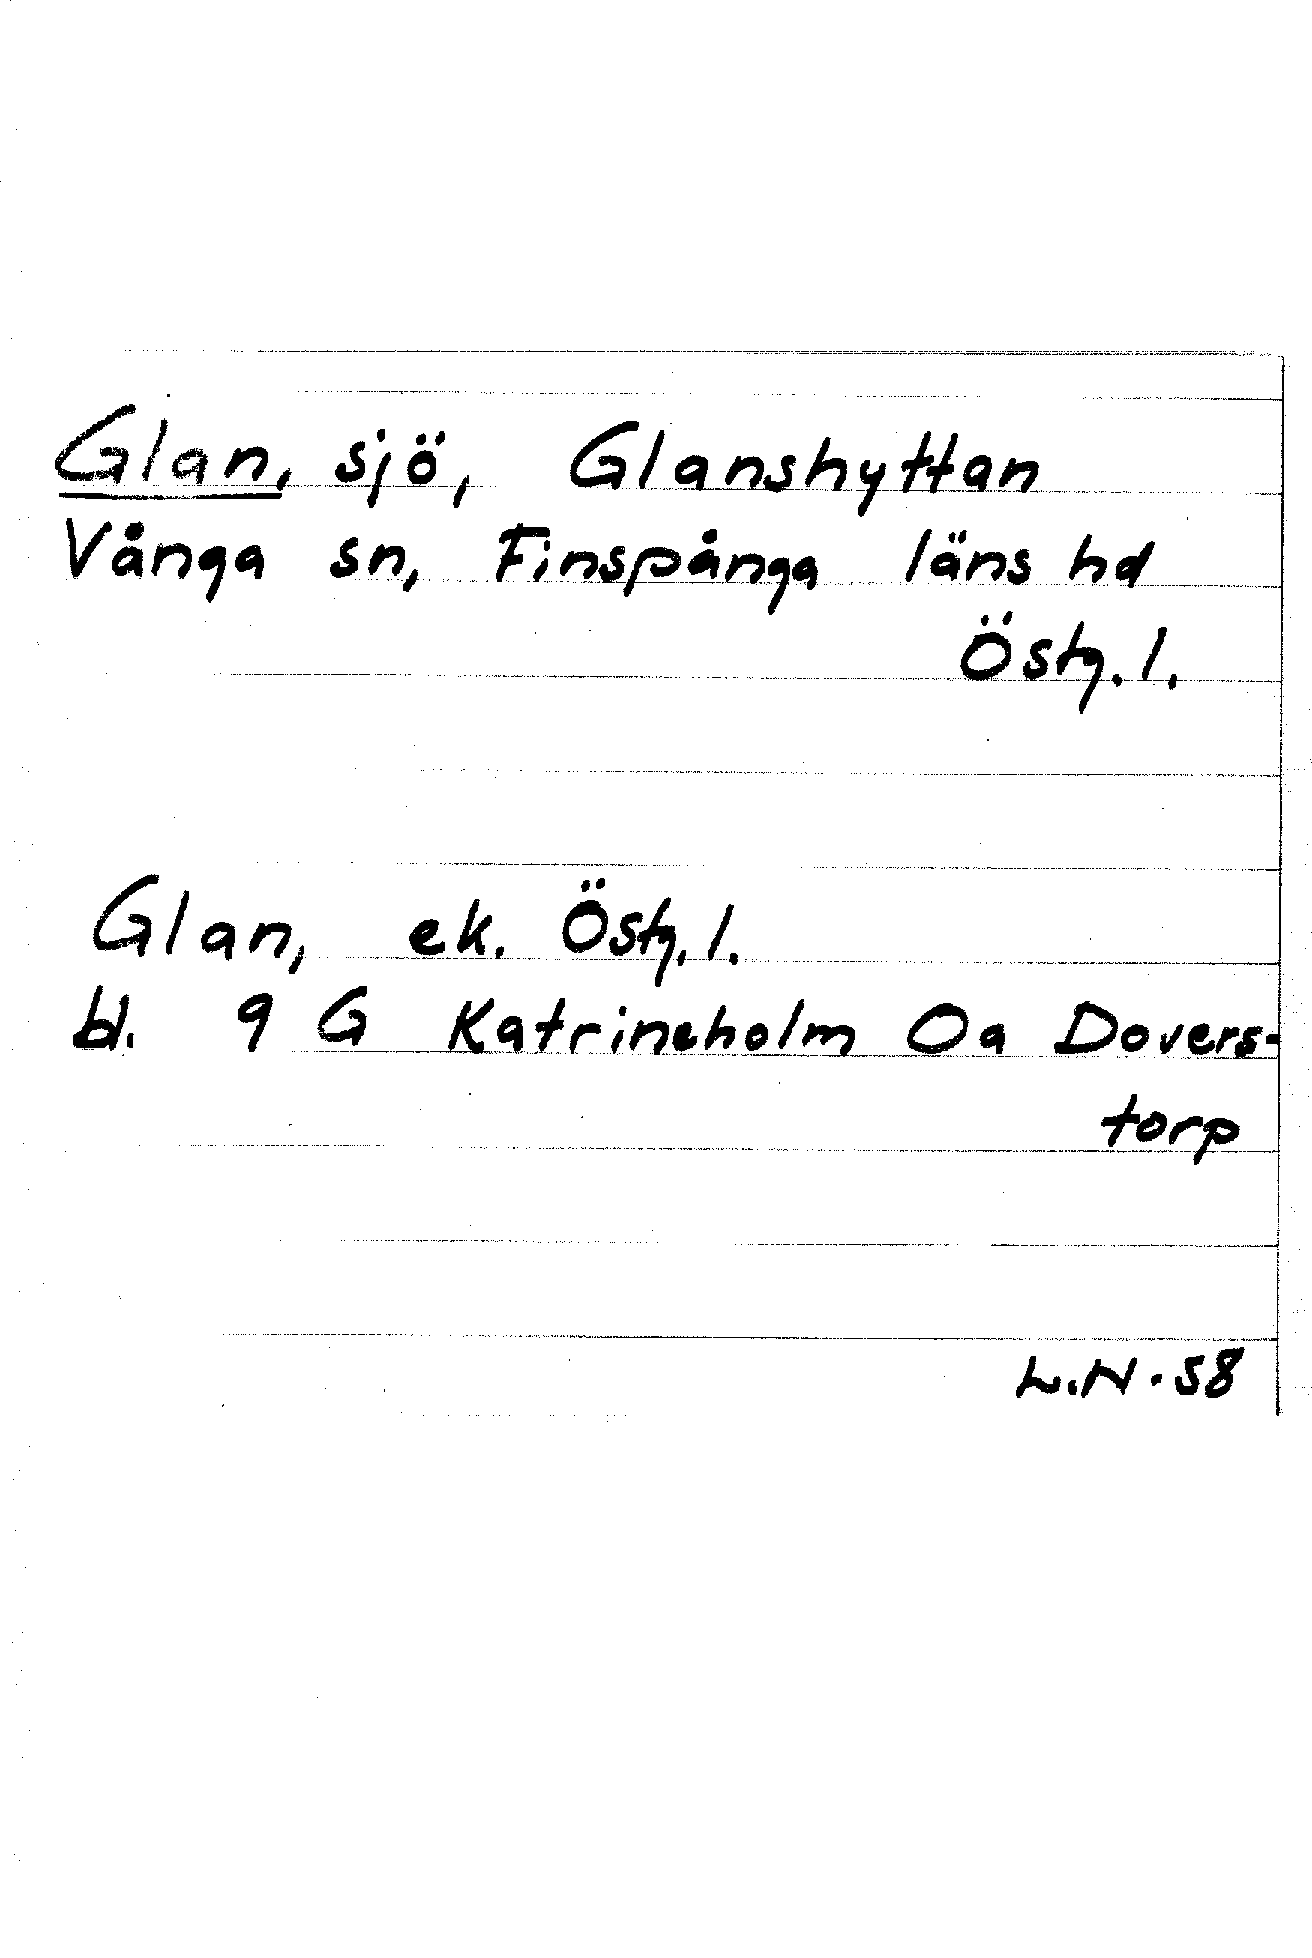 Glan, sjö, Glanshyttan
Vånga sn, Finspånga läns hd
Östg. l.
Glan, ek. Östg. l.
bl. 9 G Katrineholm Oa Dovers-
torp
L.N. 58